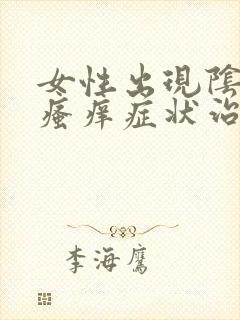 女性出現陰
瘙痒症状治
李海鹰